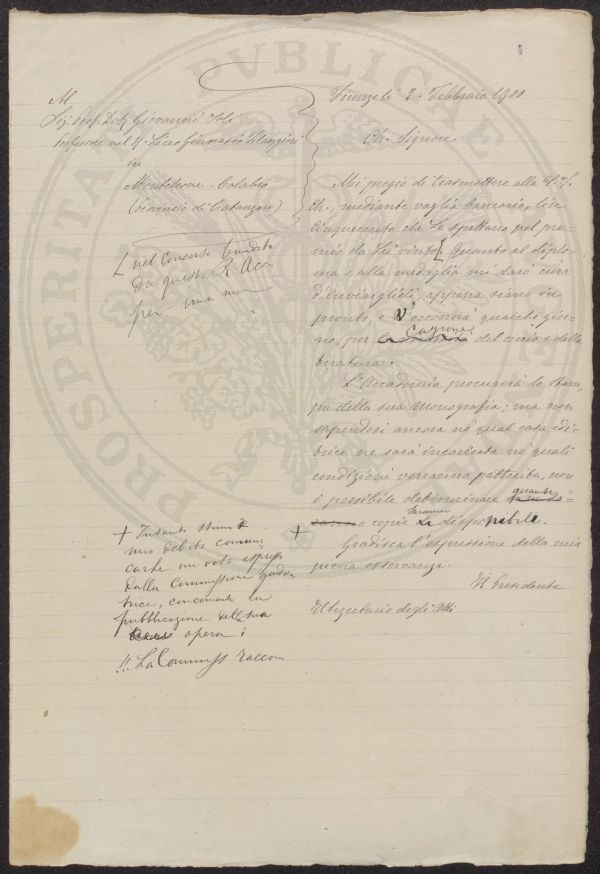 Firenze li 2. Febbraio 1900
Al
Sig. Prof. Dott. Giovanni
Professore nel R. Liceo Ginnasio Filangieri
in
Monteleone-Calabro
(Provincia di Catanzaro)
Ch. Signore
Mi pregio di trasmettere alla S. V.
Ch., mediante vaglia bancario, lire
cinquecento che Le spettano pel pre-
mio da Lei vinto [. Quanto al diplo-
ma e alla medaglia mi darò cura
d'inviarglieli, appena siano in
pronto, e v'occorrerà qualche gior-
no, per cagione del conio e della
tiratura.
[ nel concorso bandito
da questa R. Acca
per una
L'Accademia procurerà la stam-
pa della sua Monografia; ma non
sapendosi ancora nè qual casa edi-
trice ne sarà incaricata nè quali
condizioni verranno pattuite, non
è possibile determinare quante
copie saranno disponibile.
+
Gradisca l'espressione della mia
piena osservanza.
Il Presidente
Il Segretario degli Atti
+ Intanto stimo
mio debito comuni-
carle un voto espresso
dalla Commissione giudica
trice, concernente la
pubblicazione della sua
opera:
!! La Commiss raccom
PROSPERITATI PUBLICAE